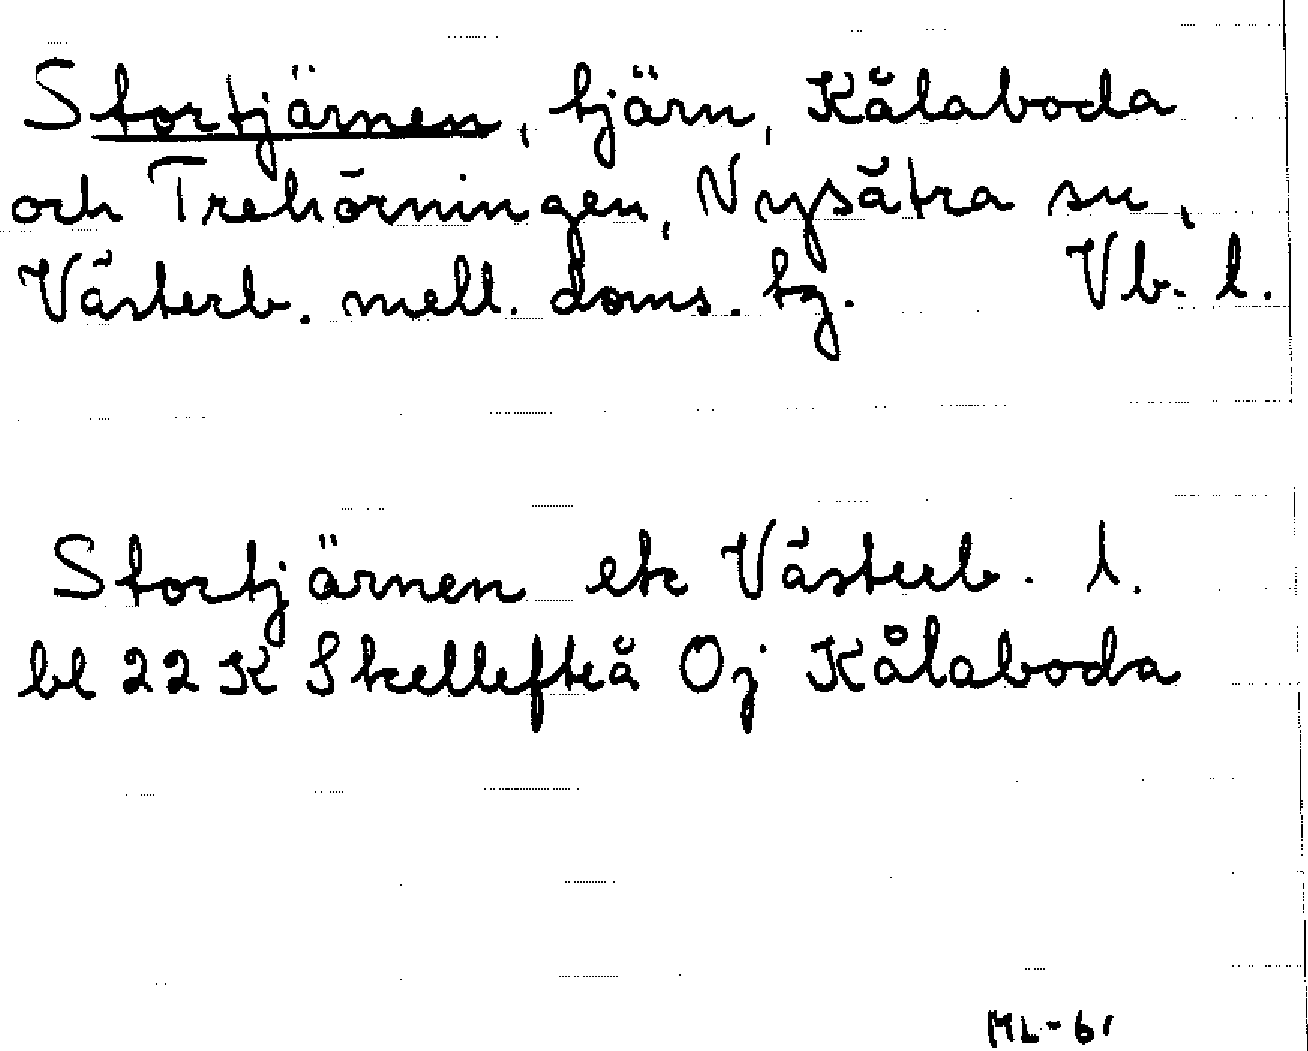 Stortjärnen, tjärn, Kålaboda
och Trehörningen, Nysätra sn,
Västerb. mell. doms. tg. Vb. l.
Stortjärnen ek Västerb. l.
bl 22 K Skellefteå Oj Kålaboda
ML-61